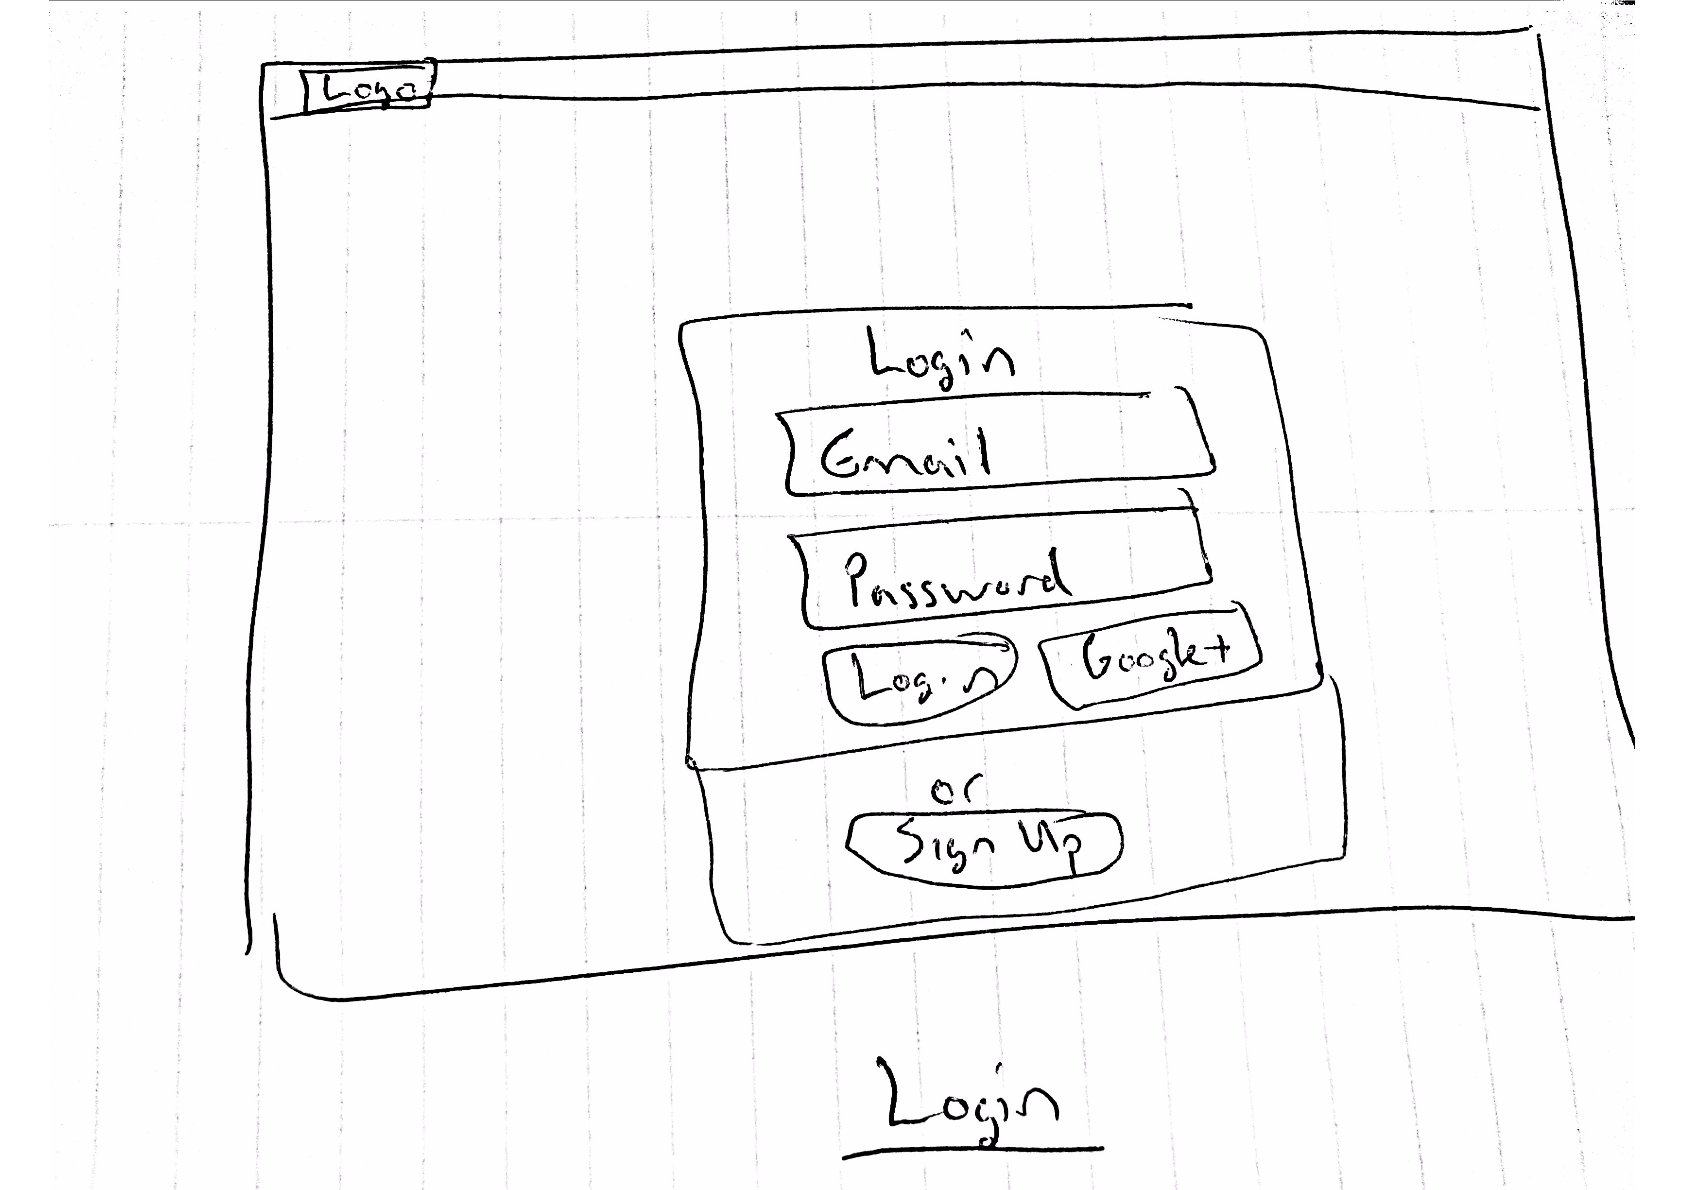 Logo
Login
Email
Password
Login Google+
or
Sign Up
Login